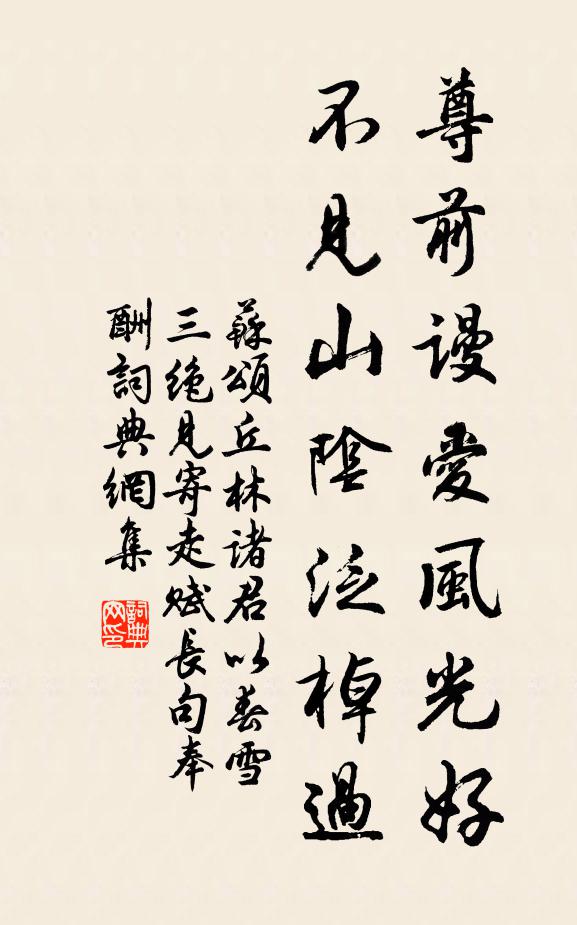 尊前謾愛風光好
不見山陰泛棹過
蘇頌丘林諸君以春雪
三絶見寄走賦長句奉
酬詞典網集
詞典
网印